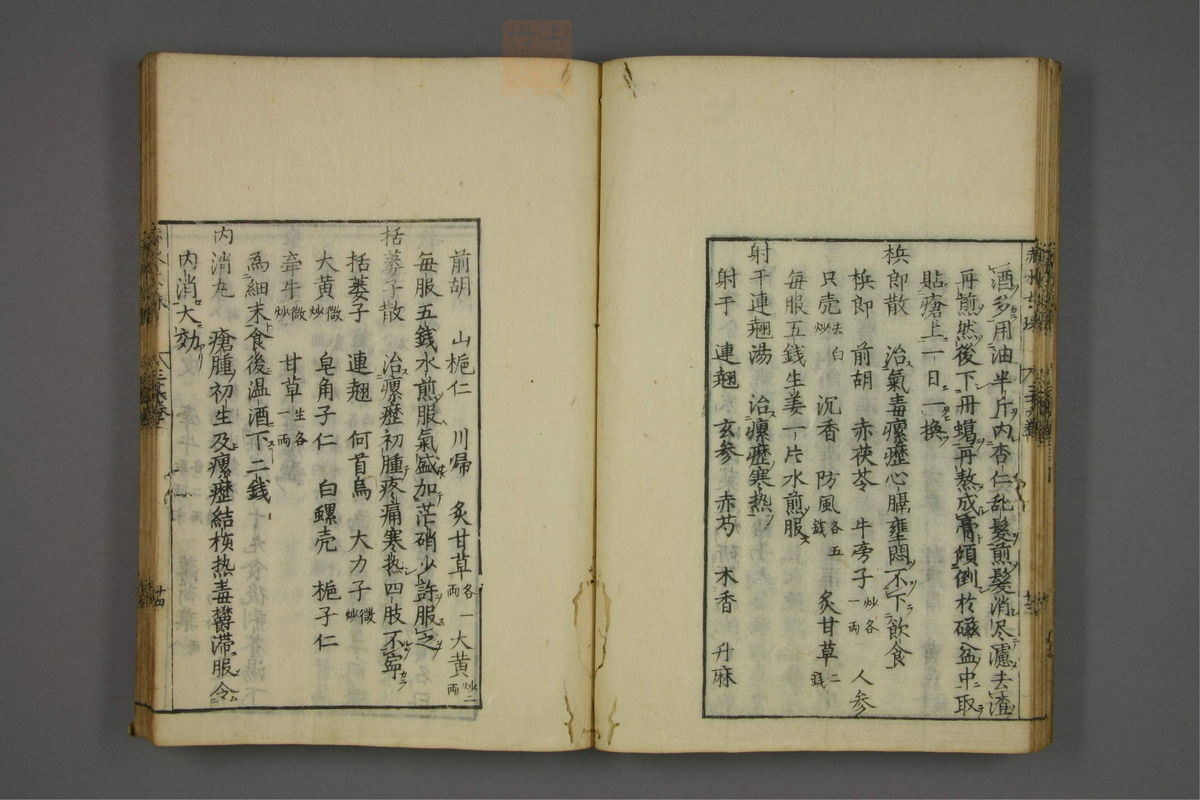 酒多用油半斤内杏仁乱髮煎髮消尽濾去渣
再煎然後下丹蝎再熬成膏傾倒於磁盆中取
貼瘡上一日一換
梹郎散 治氣毒瘰癧心膈壅悶不下飲食
梹郎 前胡 赤茯苓 牛旁子炒各一両 人参
只壳去白炒 沉香 防風各五銭 炙甘草二銭
毎服五銭生姜一片水煎服
射干連翹湯 治瘰癧寒熱
射干 連翹 玄参 赤芍 木香 升麻
前胡 山梔仁 川帰 炙甘草各一両 大黄炒二両
毎服五銭水煎服氣盛加茫硝少許服之
括蔞子散 治瘰癧初腫疼痛寒热四肢不寧
括蔞子 連翹 何首烏 大力子微炒
大黄微炒 皂角子仁 白螺壳 梔子仁
牽牛微炒 甘草生各一両
為細末食後温酒下二銭
内消丸 瘡腫初生及瘰癧結核热毒欝滞服令
内消大効